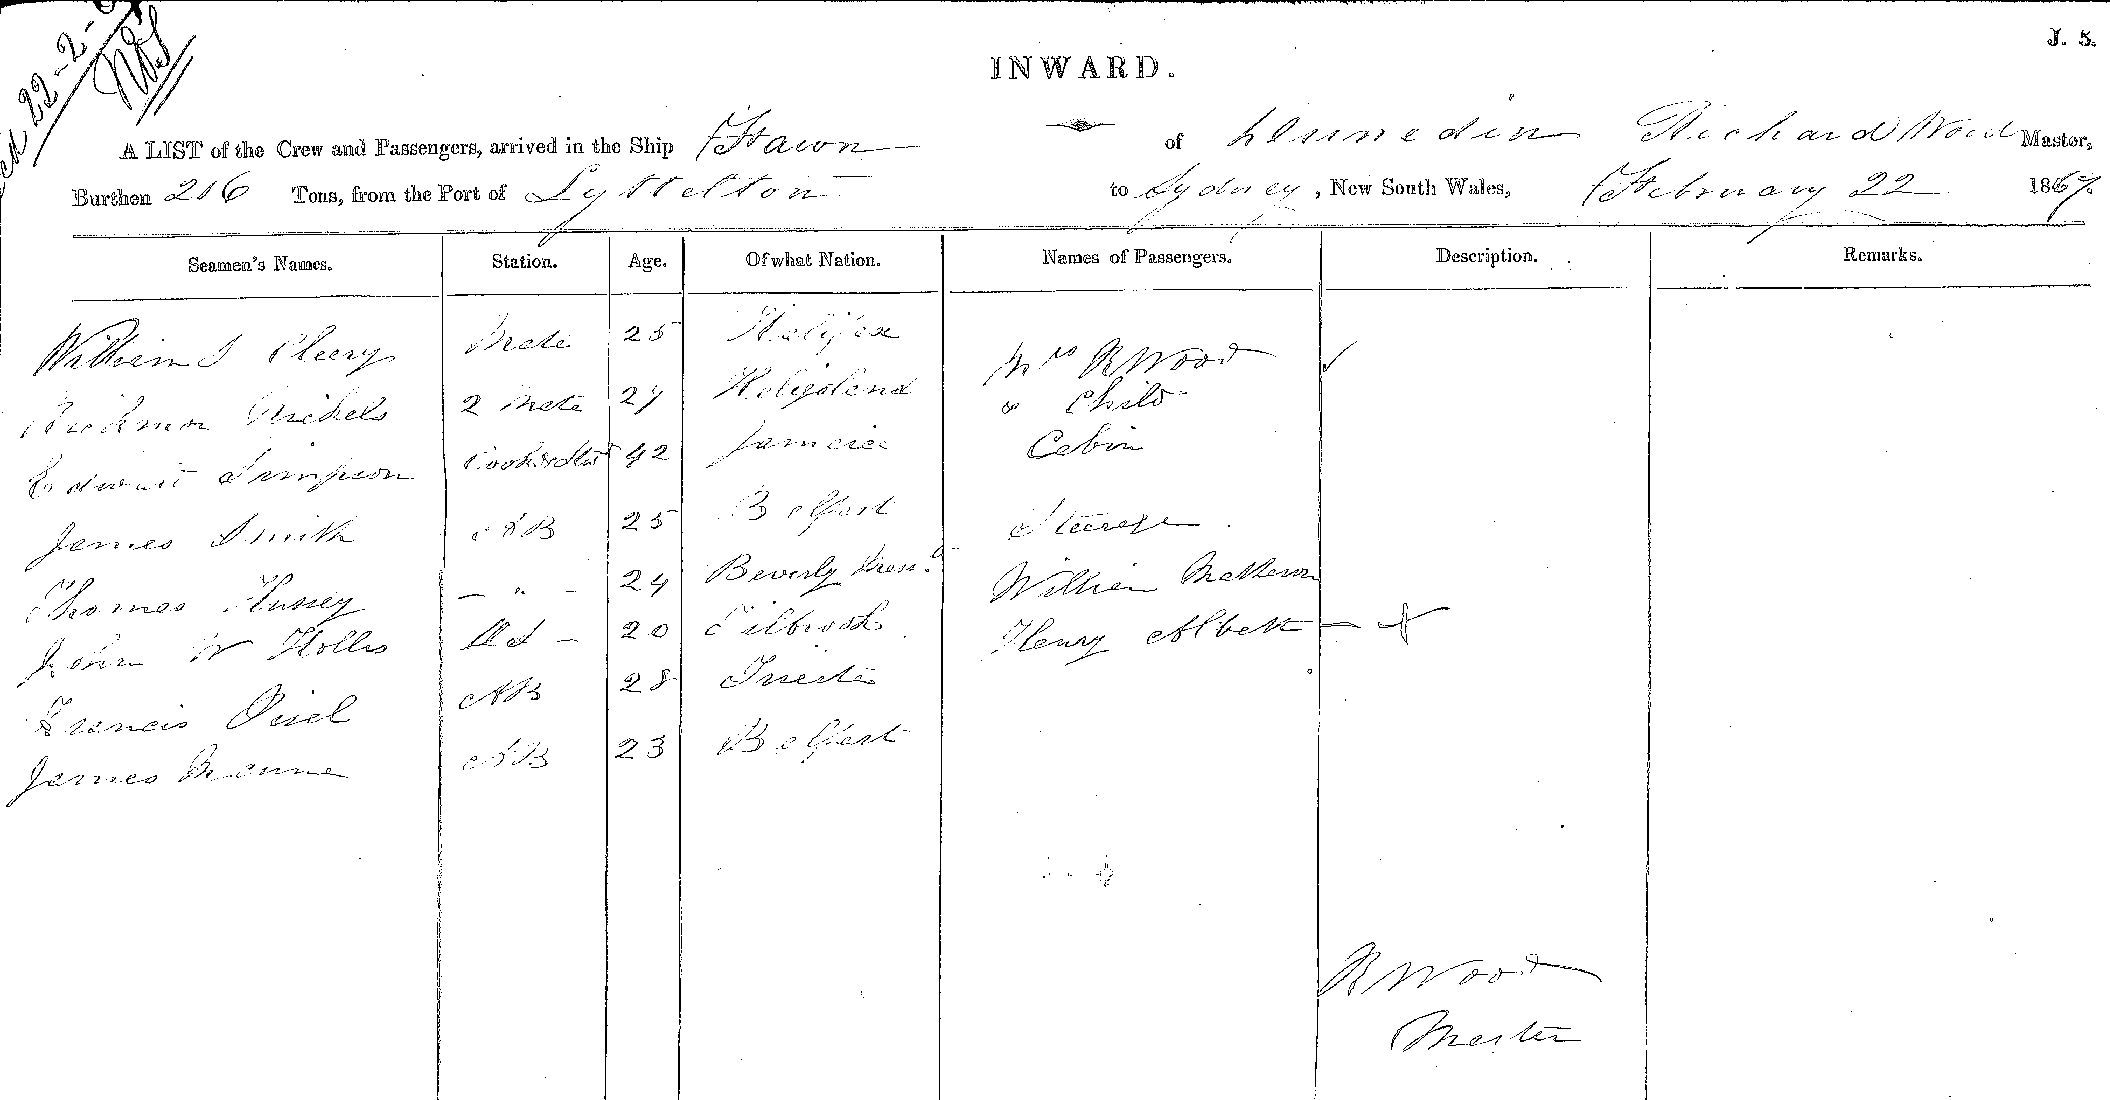 22-2-
J. 5.
INWARD.
A LIST of the Crew and Passengers, arrived in the Ship Fawn of Dunedin Richard Wood Master,
Burthen 216 Tons, from the Port of Lyttelton to Sydney, New South Wales, February 22 1867.
Seamen's Names. Station. Age. Of what Nation. Names of Passengers. Description. Remarks.
William J Mate 25 Halifax Mrs R Wood
Michels 2 Mate 27 Heligoland " Child
Edward Simpson Cook & Std 42 Jamaica Cabin
James Smith AB 25 Belfast Steerage
Thomas Hussey - " - 24 Beverly William
John W Hollis OS - 20 Tilbrook Henry Albett
Francis AB 28 Trieste
James AB 23 Belfast
R Wood
Master